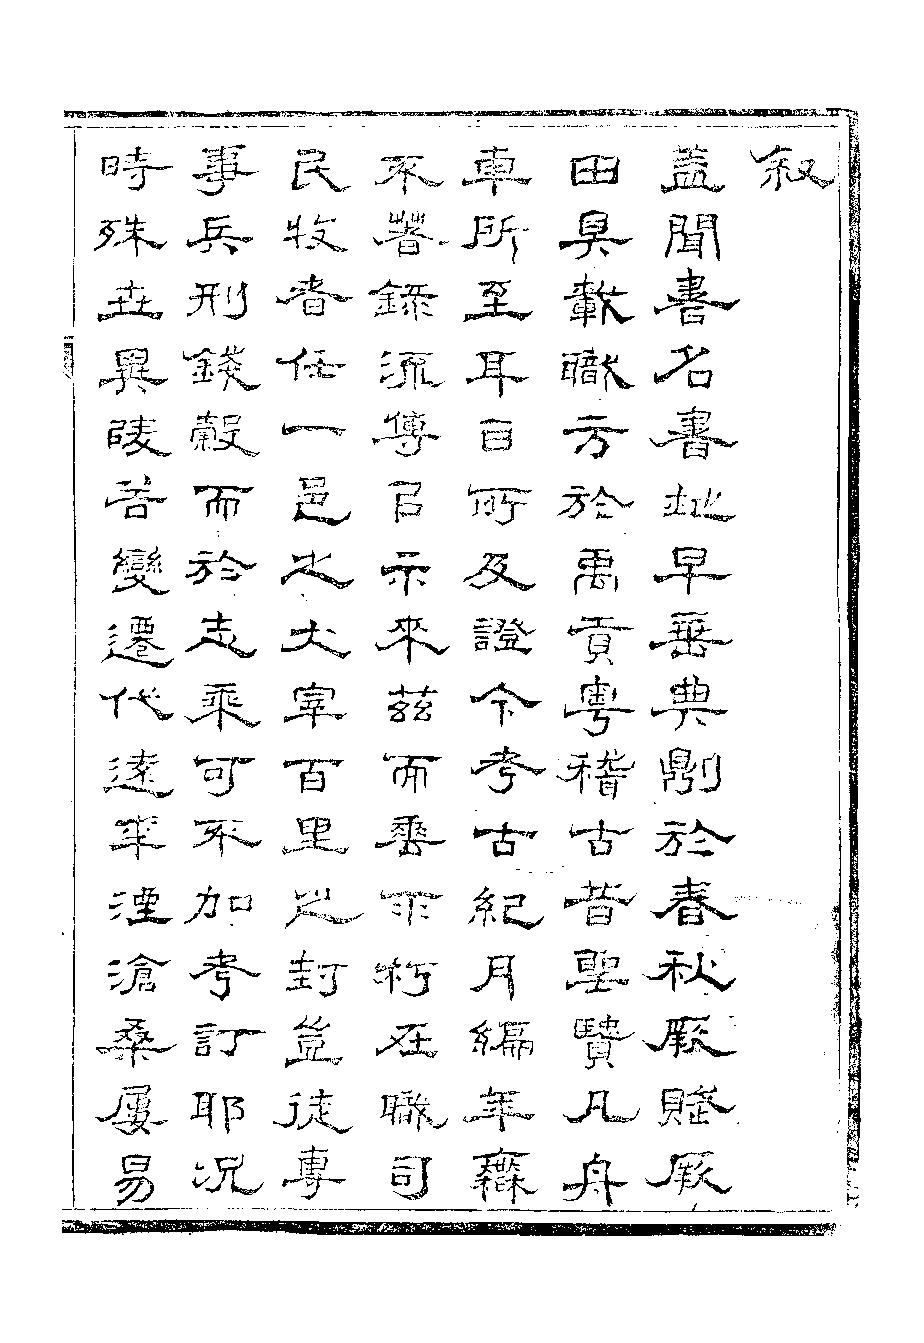 叙
蓋聞書名書地早垂典則於春秋厥賦厥
田具載職方於禹貢粵稽古昔聖賢凡舟
車所至耳目所及證今考古紀月編年靡
不著錄流傳昭示來茲而垂不朽在職司
民牧者任一邑之大宰百里之封豈徒專
事兵刑錢穀而於志乘可不加考訂耶况
時殊世異陵谷變遷代遠年湮滄桑屢易